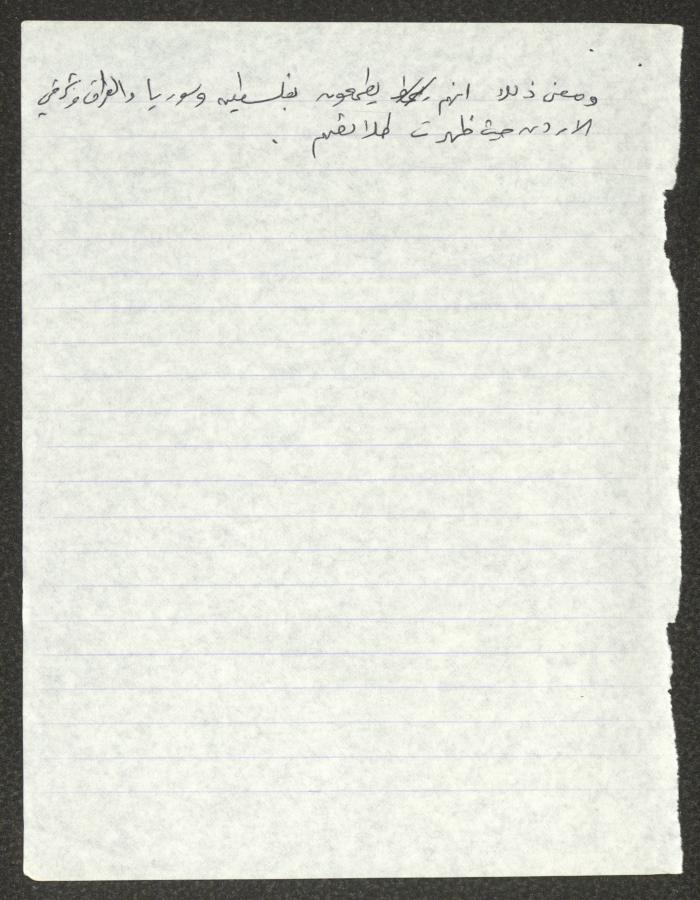 ومعنى ذلك انهم يطمعون بفلسطين وسوريا والعراق وشرقي
الاردن حيث ظهرت طلائعهم .